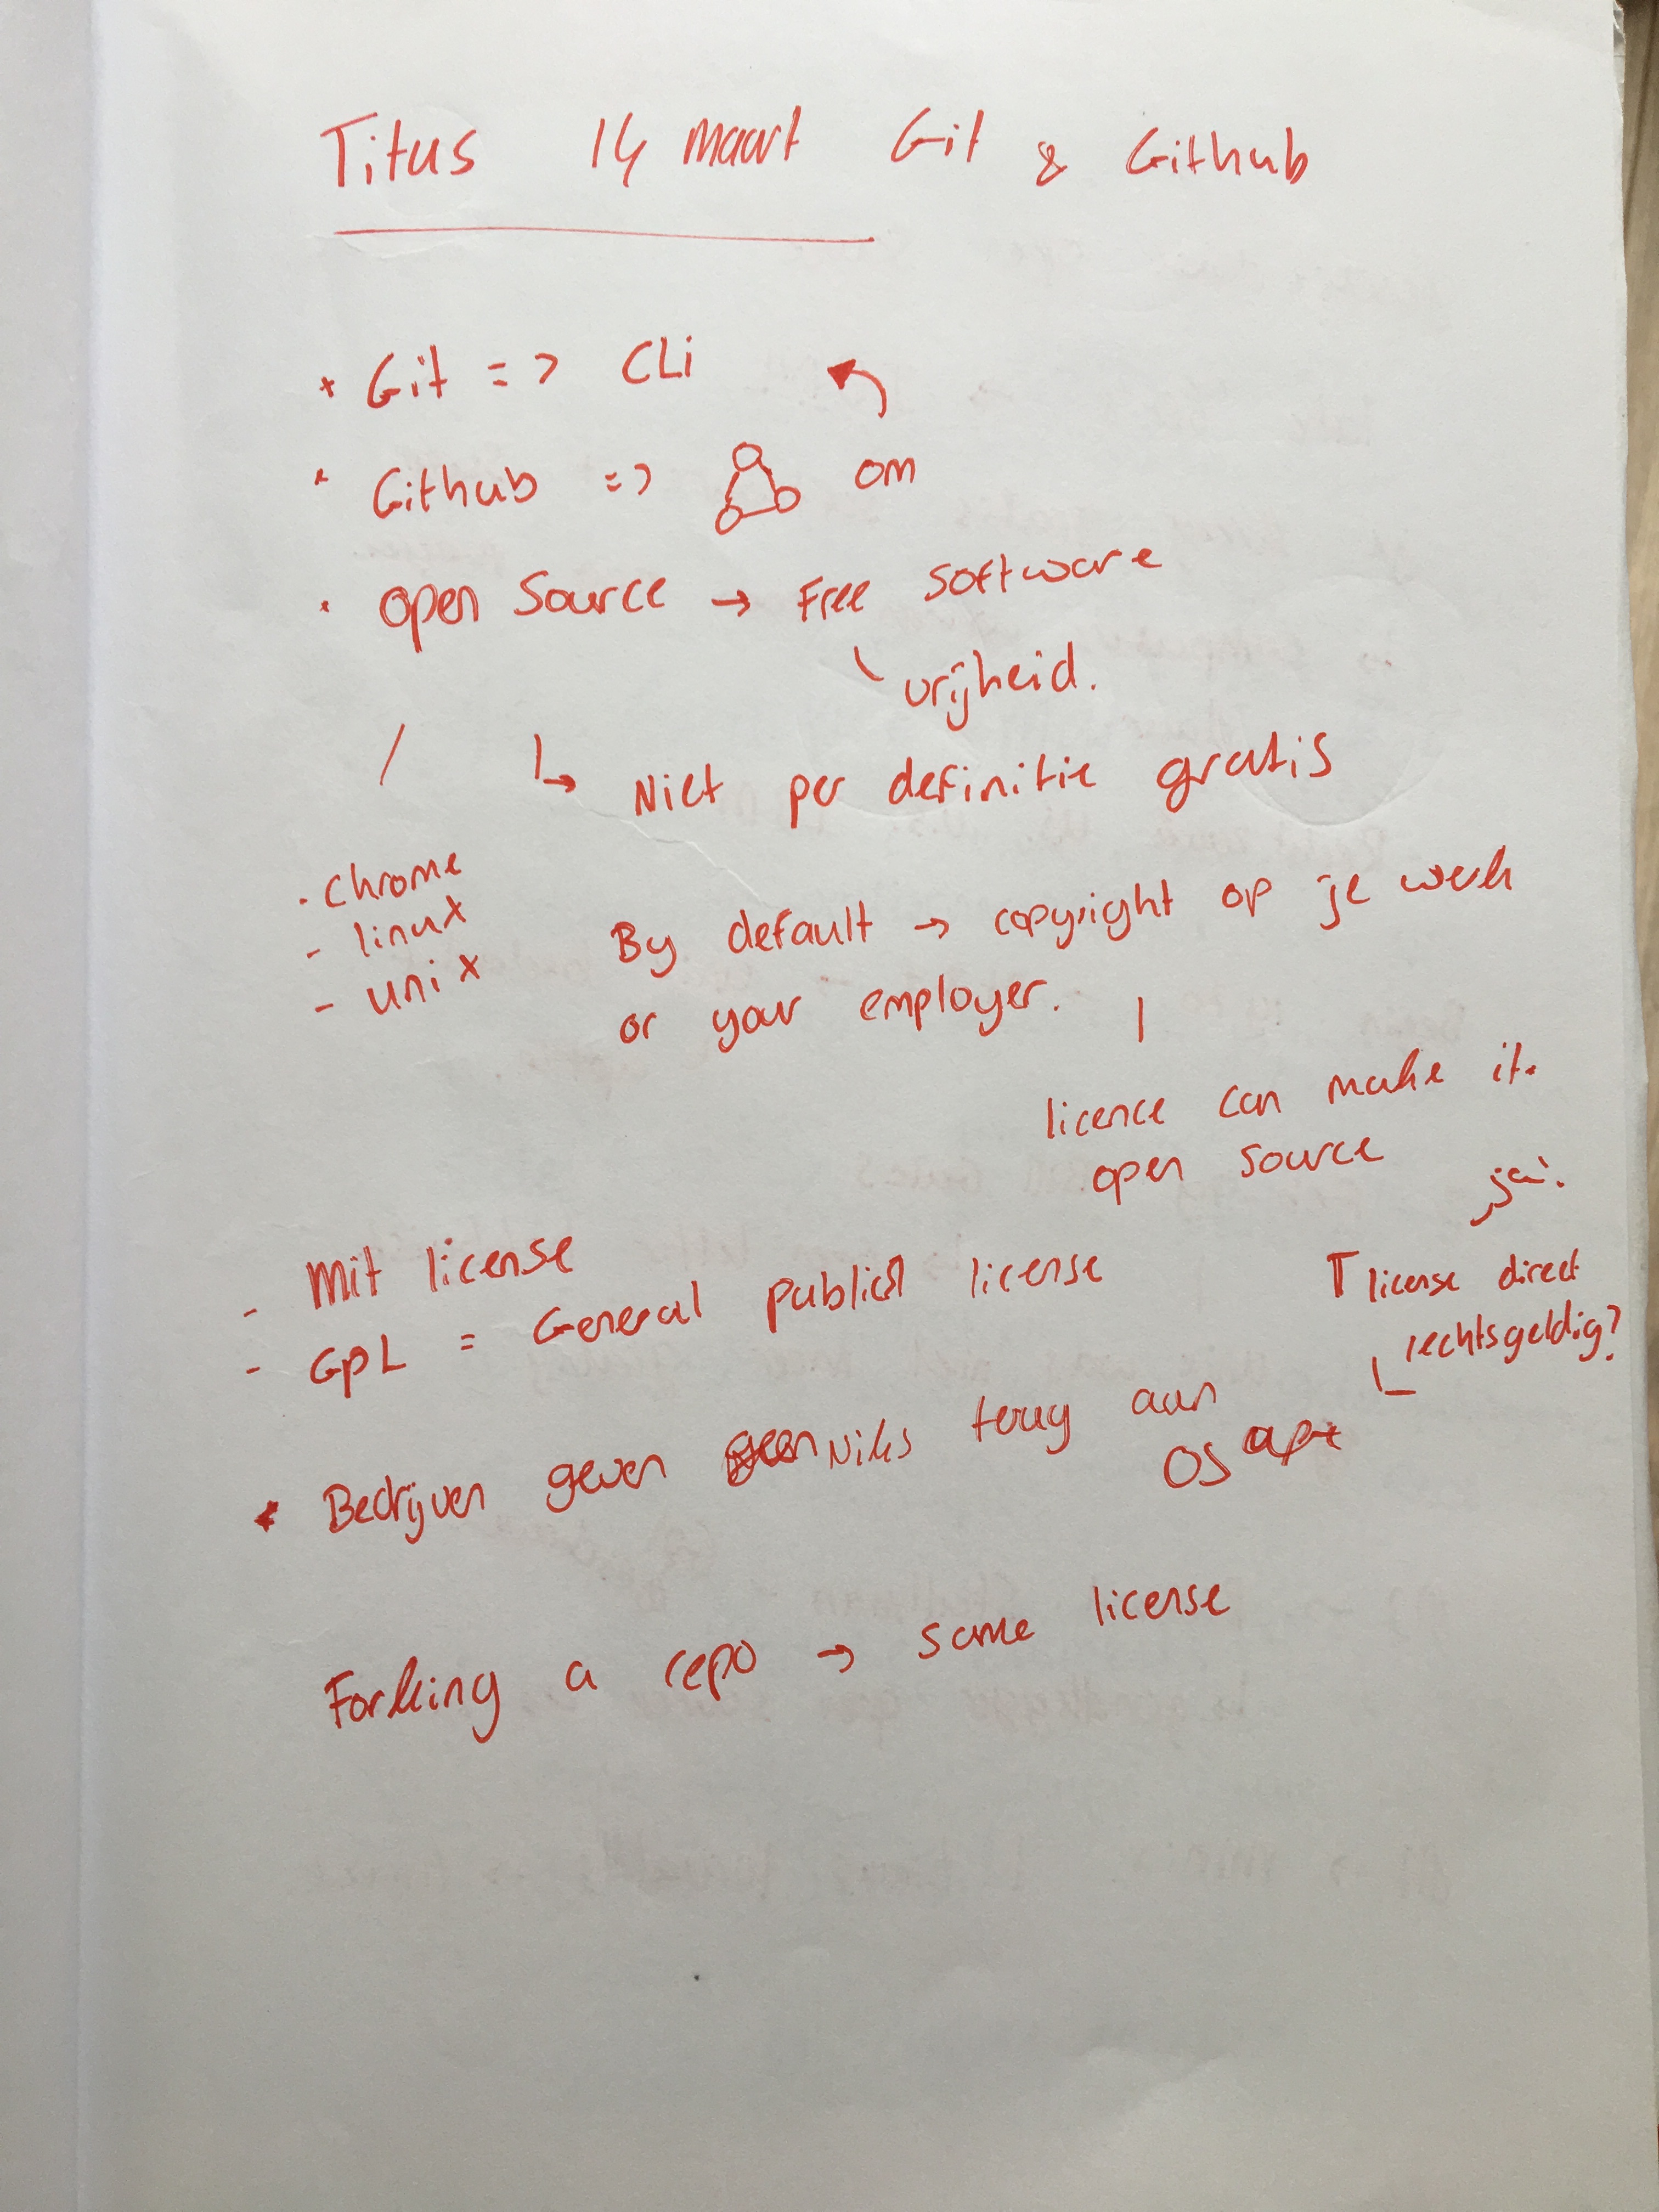 Titus 14 maart Git & Github
* Git => CLi
* Github => om
* open Source → Free software
vrijheid.
↳ Niet per definitie gratis
. chrome
- linux
- unix
By default → copyright op je werk
or your employer.
licence can make it.
open source
ja!
license direct
rechtsgeldig?
- Mit license
- GPL = General public license
* Bedrijven geven niks terug aan
OS
Forking a repo → same license